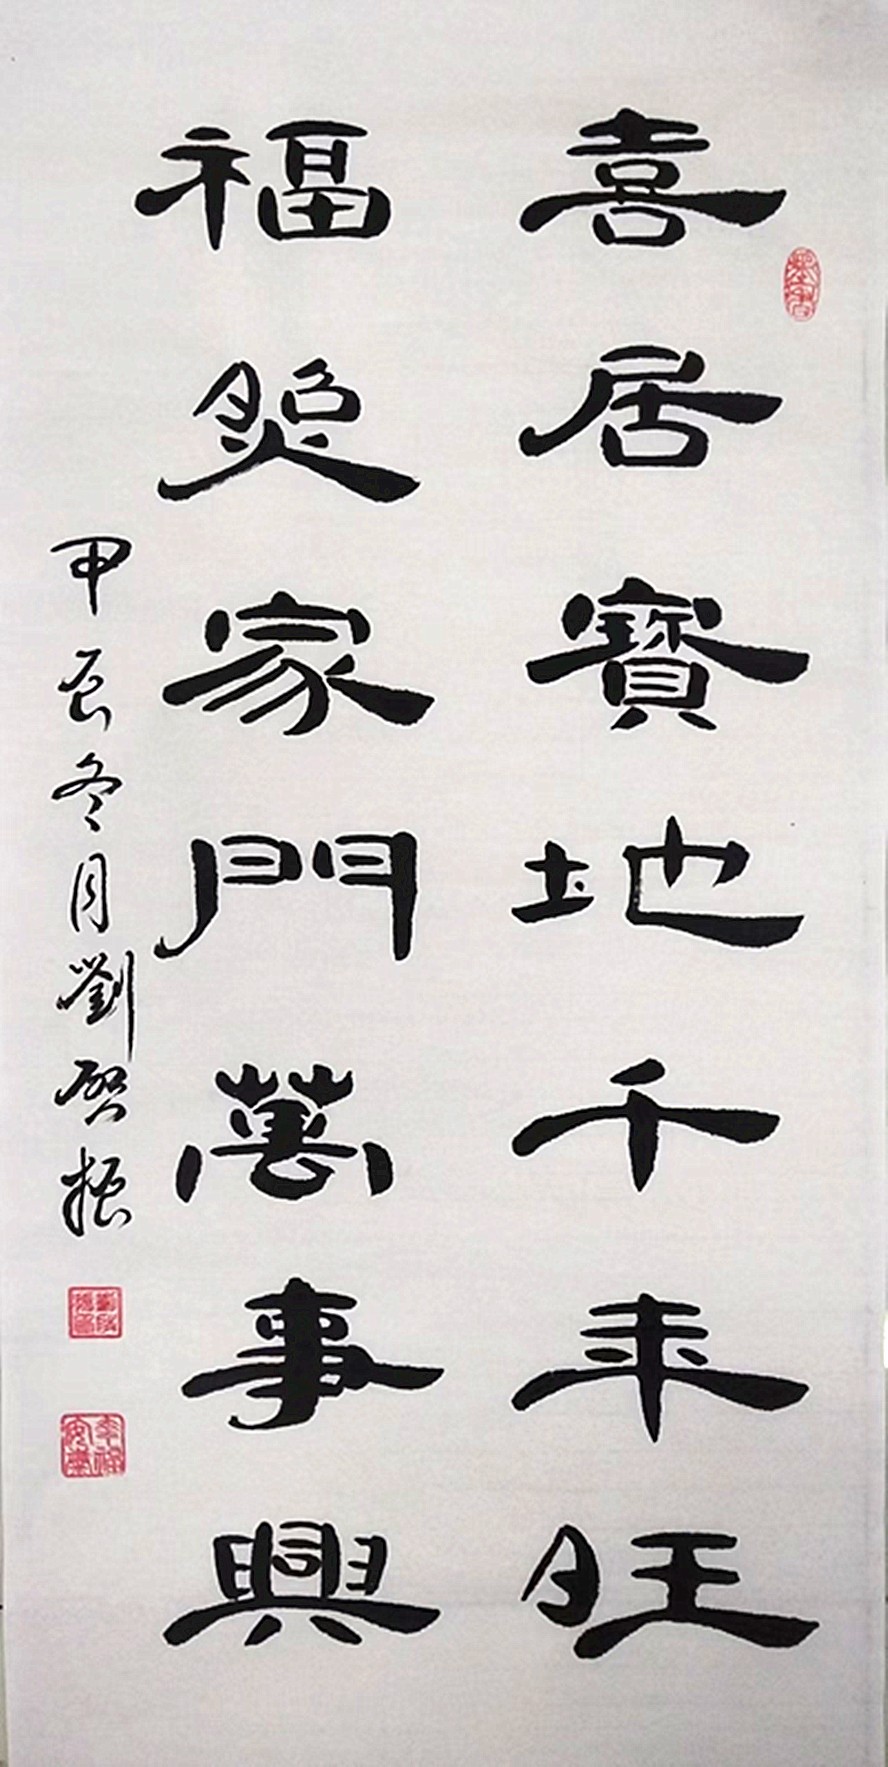 喜居寶地千年旺
福照家門萬事興
甲辰冬月劉啓振